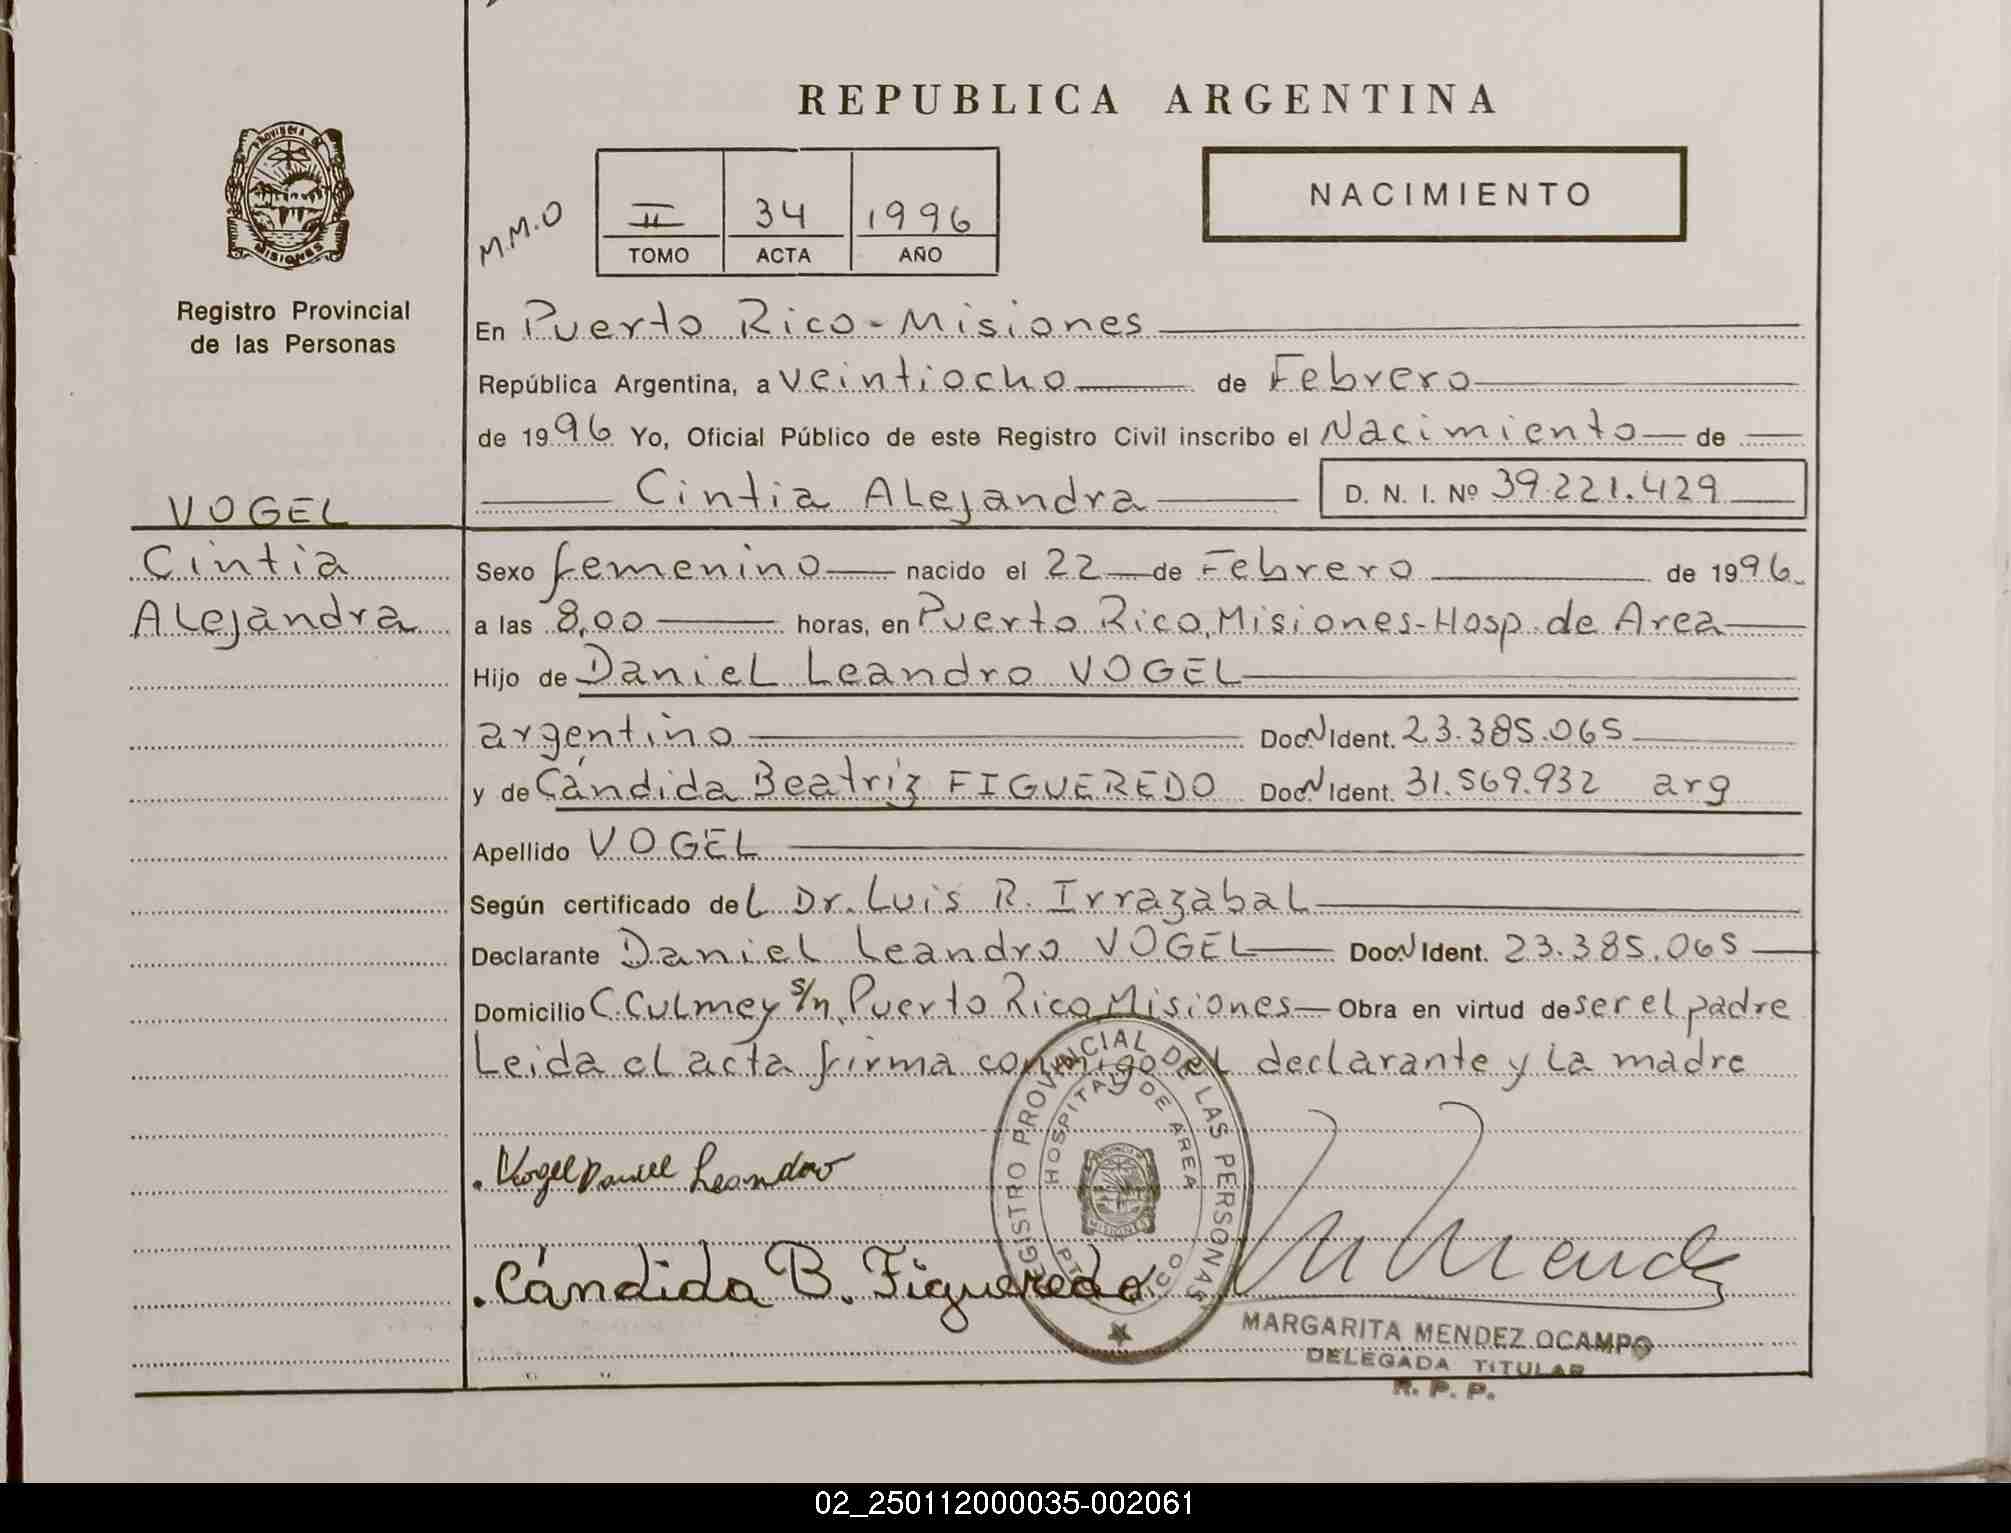 REPUBLICA ARGENTINA
PROVINCIA DE MISIONES
Registro Provincial
de las Personas
M.M.O
II 34 1996
TOMO ACTA AÑO
NACIMIENTO
En Puerto Rico - Misiones
República Argentina, a veintiocho de Febrero
de 1996 Yo, Oficial Público de este Registro Civil inscribo el Nacimiento de
Cintia Alejandra D. N. I. Nº 39.221.429
VOGEL
Cintia
Alejandra
Sexo femenino nacido el 22 de Febrero de 1996
a las 8,00 horas, en Puerto Rico, Misiones - Hosp. de Area
Hijo de Daniel Leandro VOGEL
argentino Doc. N Ident. 23.385.065
y de Cándida Beatriz FIGUEREDO Doc. N Ident. 31.569.932 arg
Apellido VOGEL
Según certificado del Dr. Luis R. Irrazabal
Declarante Daniel Leandro VOGEL Doc. N Ident. 23.385.065
Domicilio C. Culmey s/n, Puerto Rico, Misiones Obra en virtud de ser el padre
Leida el acta firma conmigo el declarante y la madre
Vogel Daniel Leandro
Cándida B. Figueredo
REGISTRO PROVINCIAL DE LAS PERSONAS
HOSPITAL DE AREA
PTO. RICO
MISIONES
M Mendez
MARGARITA MENDEZ OCAMPO
DELEGADA TITULAR
R. P. P.
02_250112000035-002061